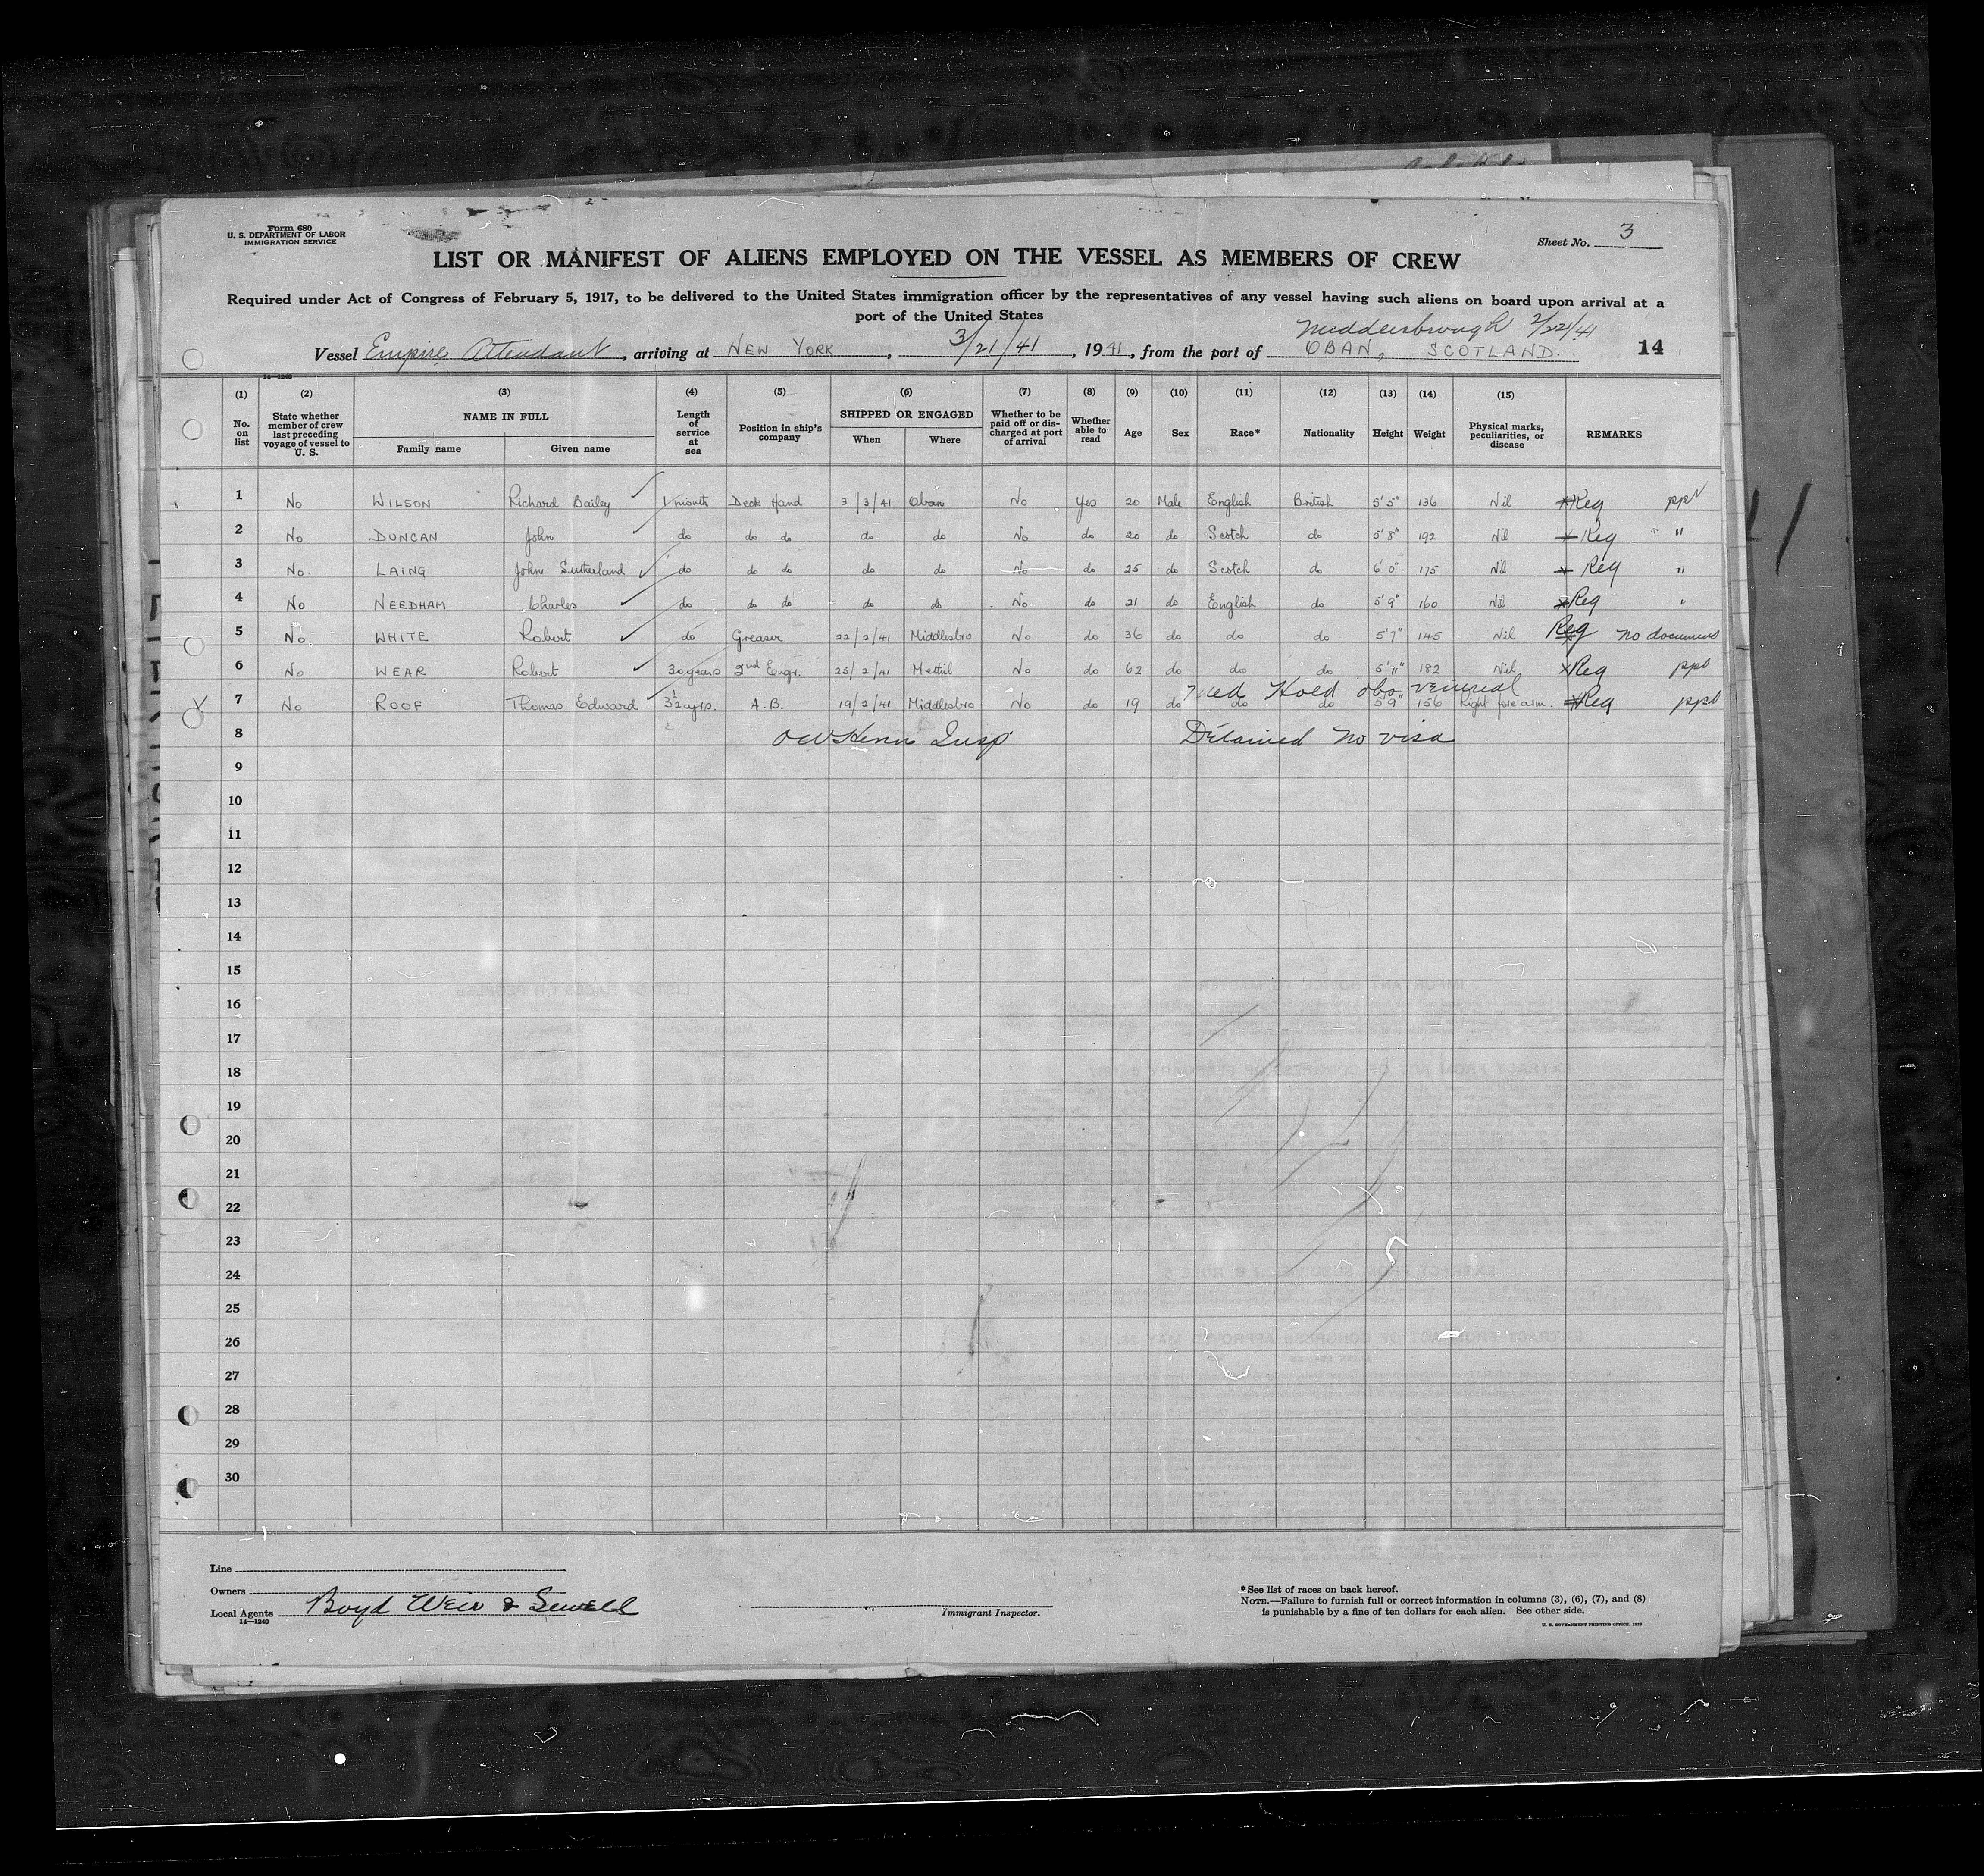 Form 680
U. S. DEPARTMENT OF LABOR
IMMIGRATION SERVICE
Sheet No. 3
LIST OR MANIFEST OF ALIENS EMPLOYED ON THE VESSEL AS MEMBERS OF CREW
Required under Act of Congress of February 5, 1917, to be delivered to the United States immigration officer by the representatives of any vessel having such aliens on board upon arrival at a
port of the United States
Middlesbrough 2/22/41
Vessel Empire Attendant, arriving at NEW YORK, 3/21/41, 1941, from the port of OBAN, SCOTLAND. 14
14-1240
(1) (2) (3) (4) (5) (6) (7) (8) (9) (10) (11) (12) (13) (14) (15)
No. on list State whether member of crew last preceding voyage of vessel to U. S. NAME IN FULL Family name Given name Length of service at sea Position in ship's company SHIPPED OR ENGAGED When Where Whether to be paid off or discharged at port of arrival Whether able to read Age Sex Race* Nationality Height Weight Physical marks, peculiarities, or disease REMARKS
1 No WILSON Richard Bailey 1 month Deck Hand 3/3/41 Oban No Yes 20 Male English British 5'5" 136 Nil Reg ppt
2 No DUNCAN John do do do do do No do 20 do Scotch do 5'8" 192 Nil Reg " "
3 No. LAING John Sutherland do do do do do No do 25 do Scotch do 6'0" 175 Nil Reg "
4 No NEEDHAM Charles do do do do do No do 21 do English do 5'9" 160 Nil Reg "
5 No. WHITE Robert do Greaser 22/2/41 Middlesbro No do 36 do do do 5'7" 145 Nil Reg no document
6 No WEAR Robert 30 years 2nd Engr. 25/2/41 Methil No do 62 do do do 5'11" 182 Nil Reg ppt
Med Hold obs. venereal
7 No ROOF Thomas Edward 3½ yrs. A.B. 19/2/41 Middlesbro No do 19 do do do 5'9" 156 Right fore arm. Reg ppt
8 Insp Detained no visa
9
10
11
12
13
14
15
16
17
18
19
20
21
22
23
24
25
26
27
28
29
30
Line
Owners
Local Agents Boyd Weir & Sewell
14-1240
Immigrant Inspector.
*See list of races on back hereof.
NOTE.—Failure to furnish full or correct information in columns (3), (6), (7), and (8)
is punishable by a fine of ten dollars for each alien. See other side.
U. S. GOVERNMENT PRINTING OFFICE